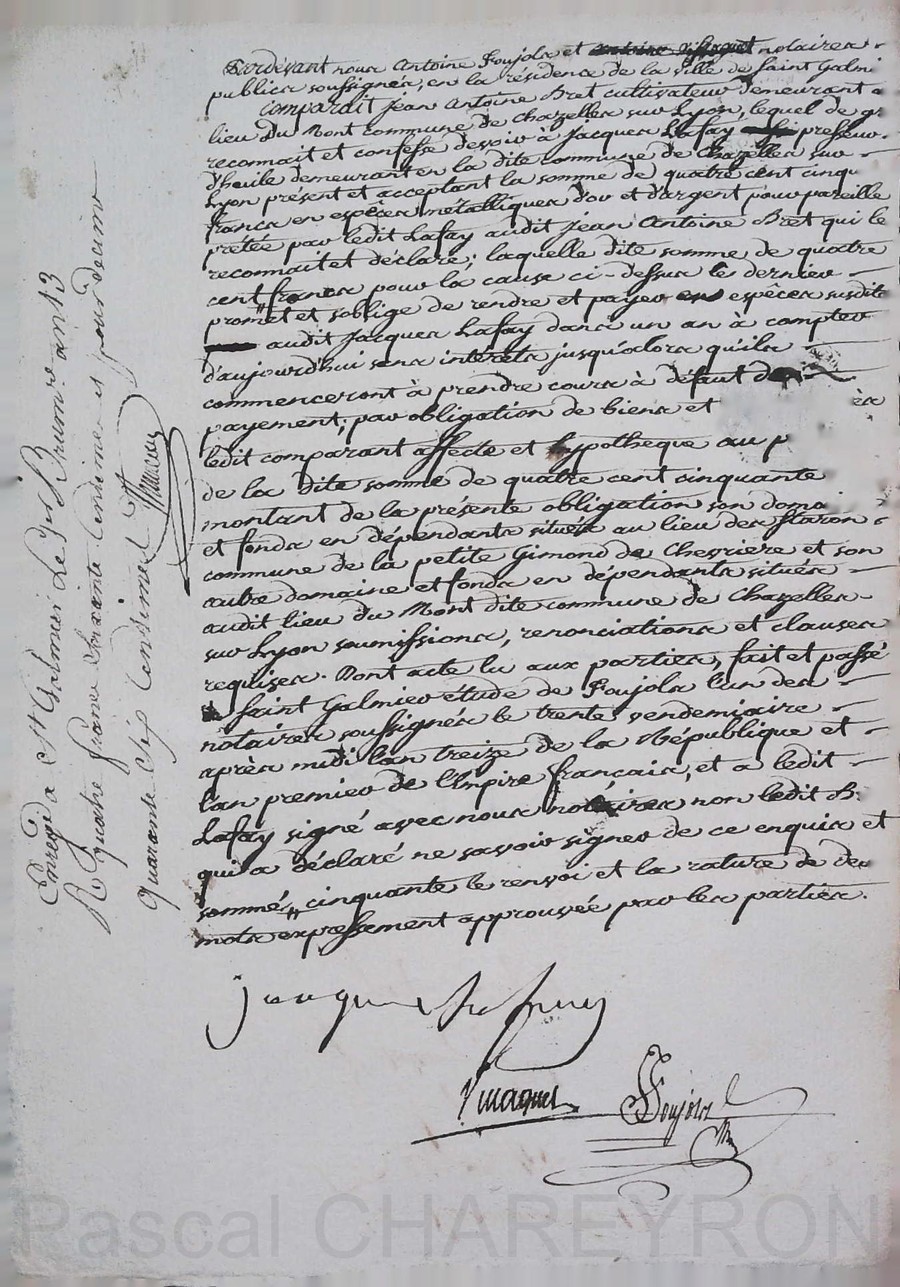 Pardevant nous Antoine Poujols et notaires
publics soussignés, en la résidence de la ville de Saint Galmi
comparait Jean Antoine Bret cultivateur demeurant a
lieu du Mont commune de Chazelles sur Lyon, lequel de gr
reconnait et confesse devoir à Jacques Lafay presseur
d'huile demeurant en la dite commune de Chazelles sur
Lyon présent et acceptant la somme de quatre cent cinqu
francs en espèces métalliques d'or et d'argent pour pareille
prêtée par ledit Lafay audit Jean Antoine Bret qui le
reconnait et déclare; laquelle dite somme de quatre
cent " francs pour la cause ci-dessus le dernier
promet et s'oblige de rendre et payer en espèces susdite
audit Jacques Lafay dans un an à compter
d'aujourd'hui sans intérêts jusqu'alors qu'ils
commenceront à prendre cours à défaut de
payement; par obligation de biens et ès
ledit comparant affecte et hypothèque au p
de la dite somme de quatre cent cinquante
montant de la présente obligation son doma
et fonds en dépendants situés au lieu des
commune de la petite Gimond de Chevriere et son
autre domaine et fonds en dépendants situés
audit lieu du Mont dite commune de Chazelles
sur Lyon soumissions, renonciations et clauses
requises. Dont acte lu aux parties, fait et passé
à Saint Galmier étude de Poujols l'un des
notaires soussignés le trente vendemiaire
après midi l'an treize de la République et
l'an premier de l'Empire français, et a ledit
Lafay signé avec nous notaires non ledit B.
qui a déclaré ne savoir signer de ce enquis et
sommé, " cinquante le renvoi et la rature de deu
mots expressement approuvée par les parties.
Jacque Lafay
Poujols
Enregé a St Galmier Le Brumre an 13
R. quatre francs cinquante centimes et pour decime
quarante cinq centimes
Pascal CHAREYRON